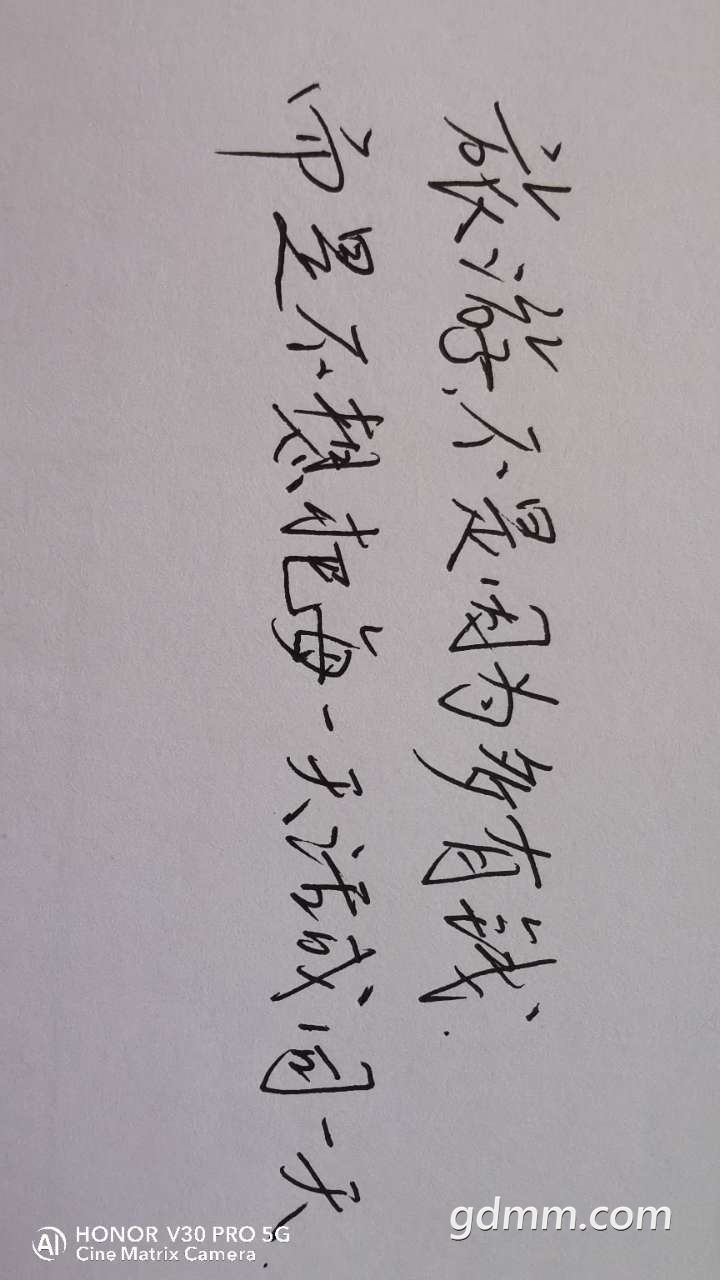 旅游、不是因为多有钱.
而是不想把每一天活成同一天.
HONOR V30 PRO 5G
Cine Matrix Camera
AI
gdmm.com